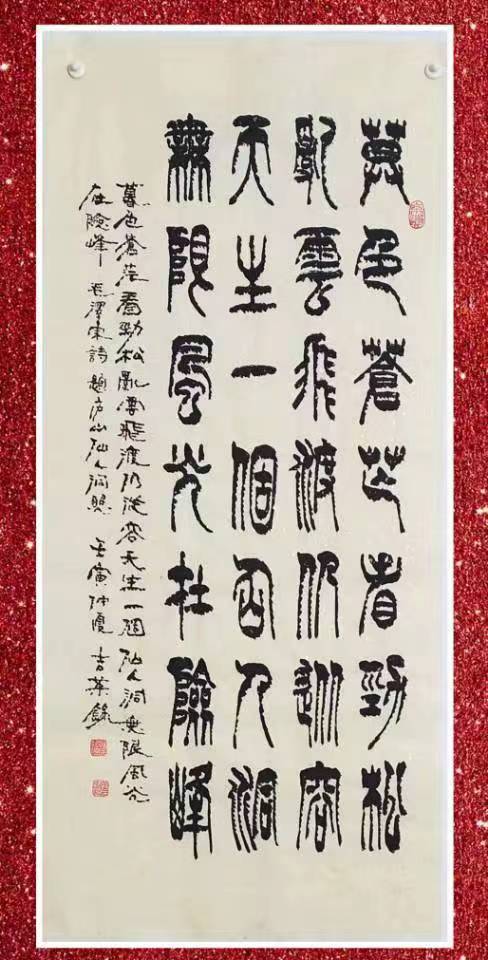 暮色蒼茫看勁松
亂雲飛渡仍從容
天生一個仙人洞
無限風光在險峰
暮色蒼茫看勁松亂雲飛渡仍從容天生一個仙人洞無限風光
在險峰 毛澤東詩題庐山仙人洞照 壬寅仲夏 吉華錄